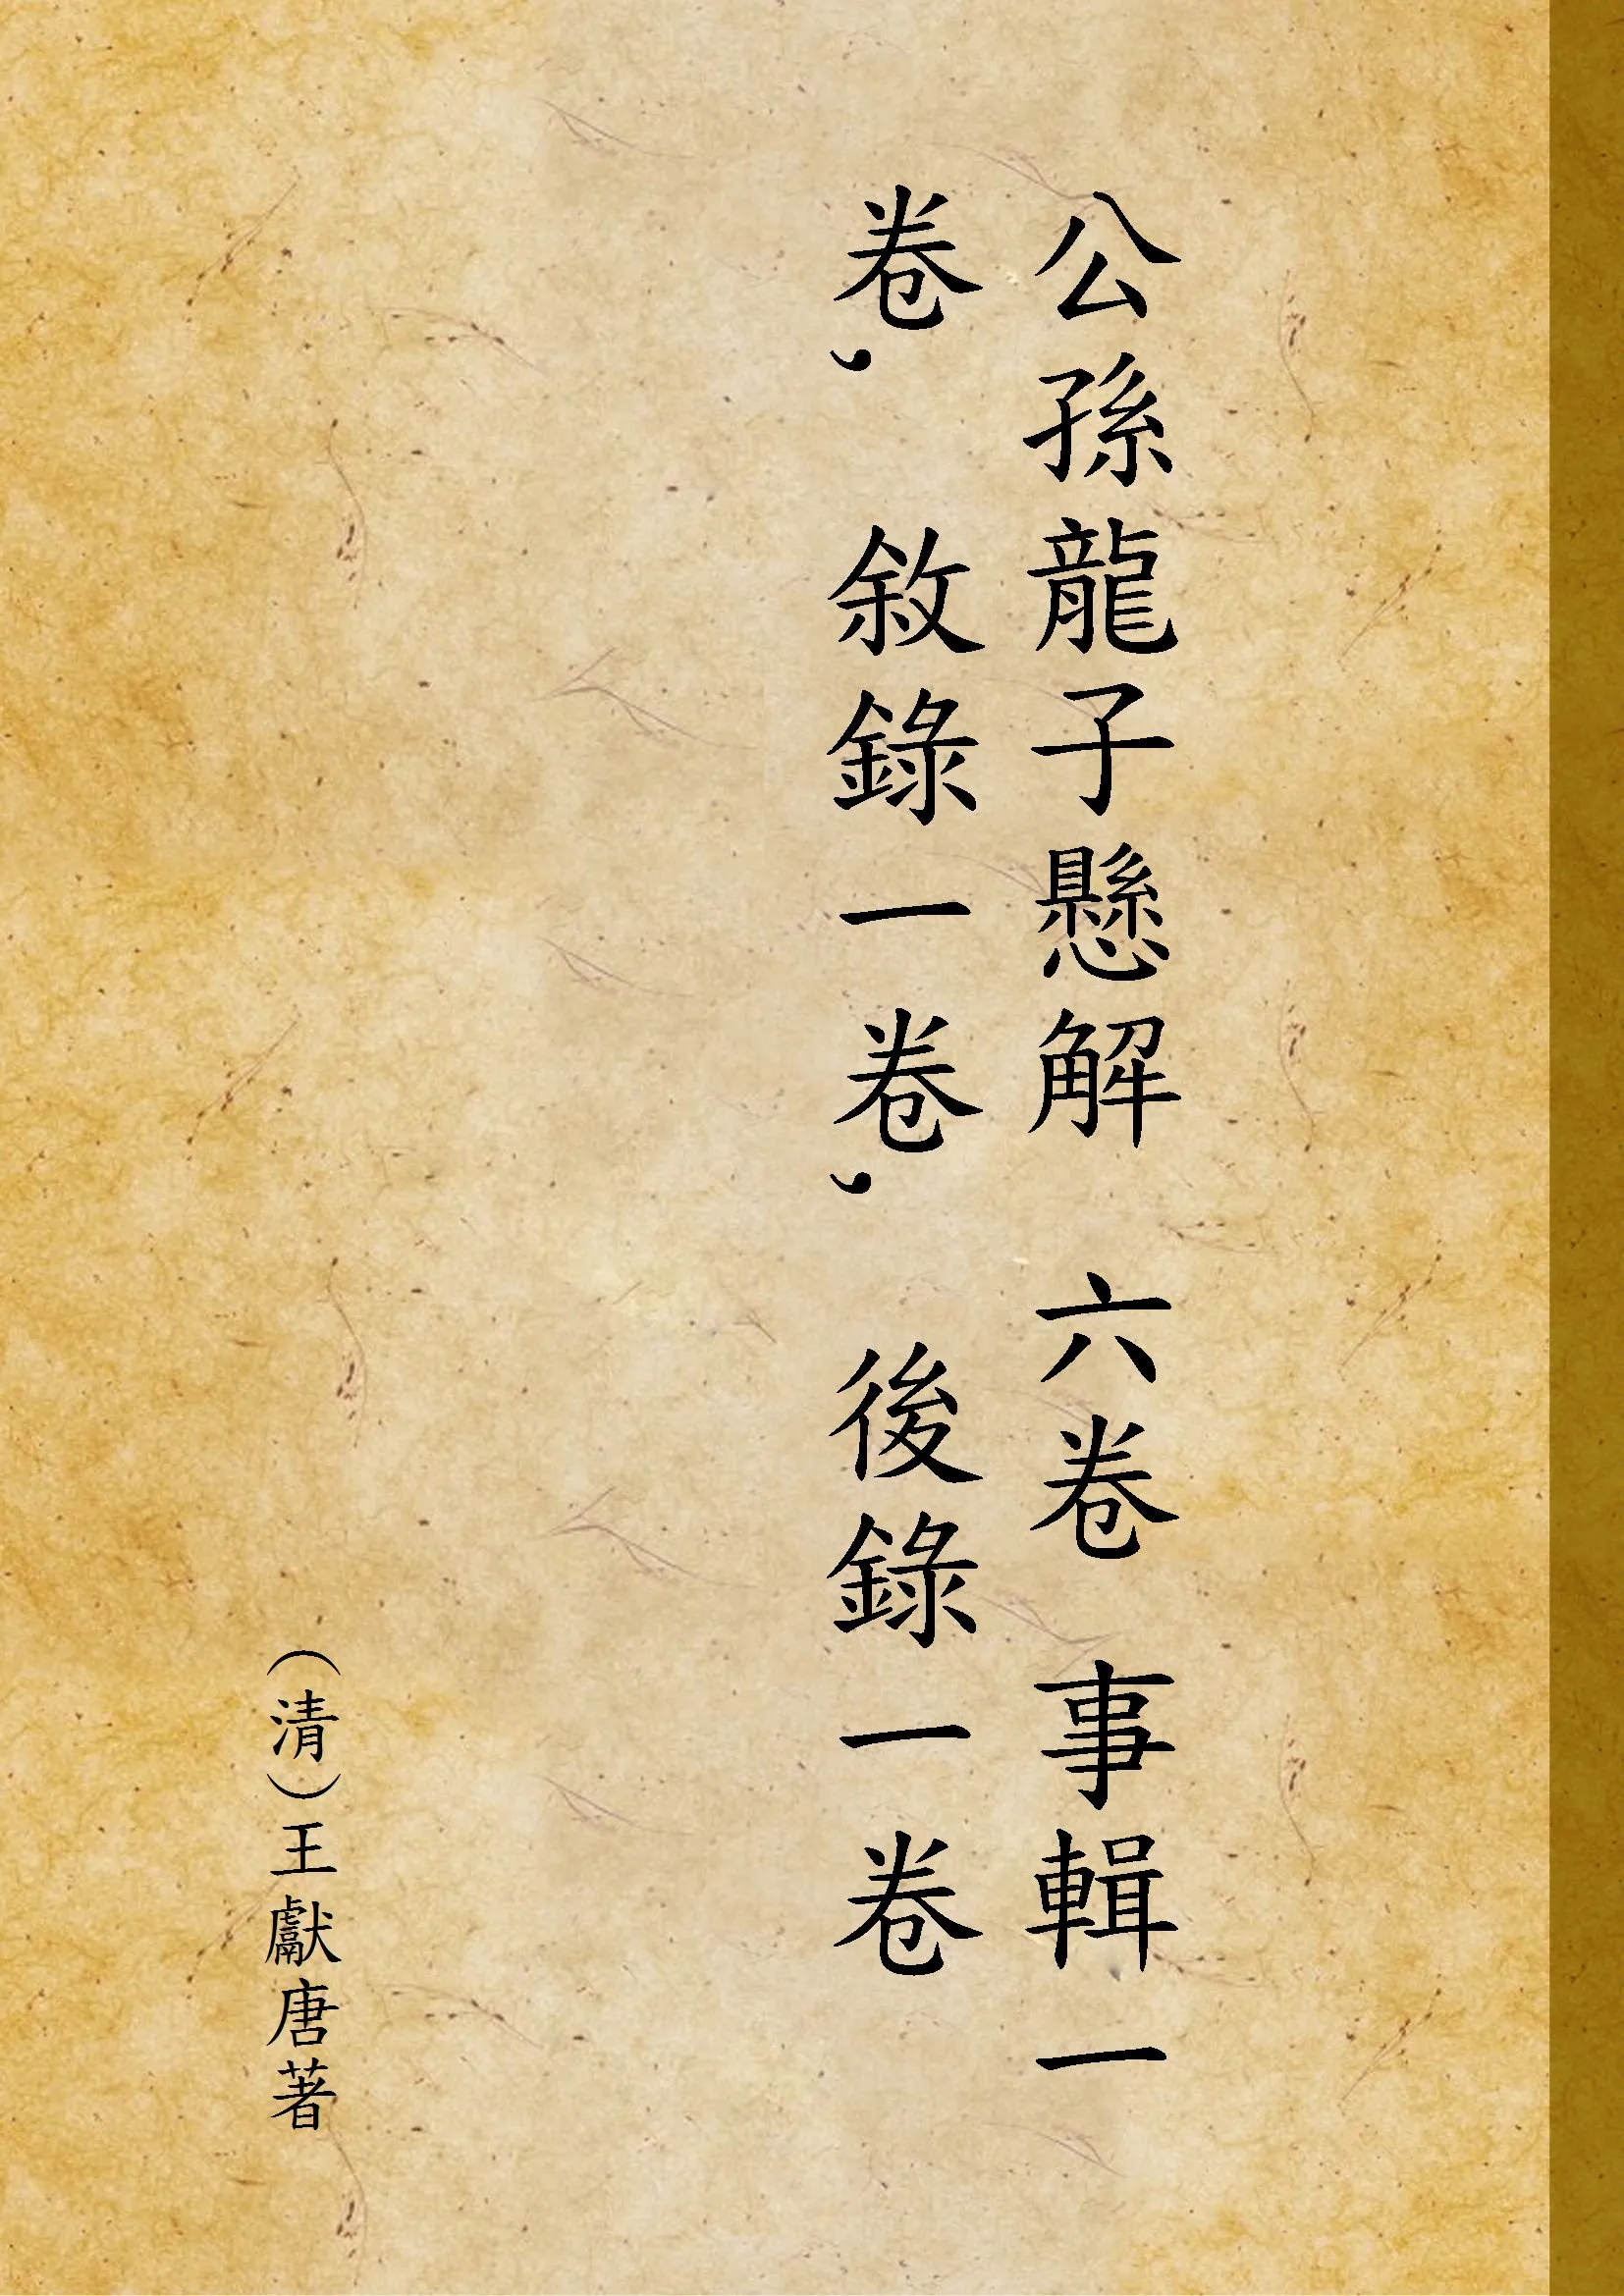 公孫龍子懸解 六卷 事輯一
卷, 敘錄一卷, 後錄一卷
(清)王獻唐著